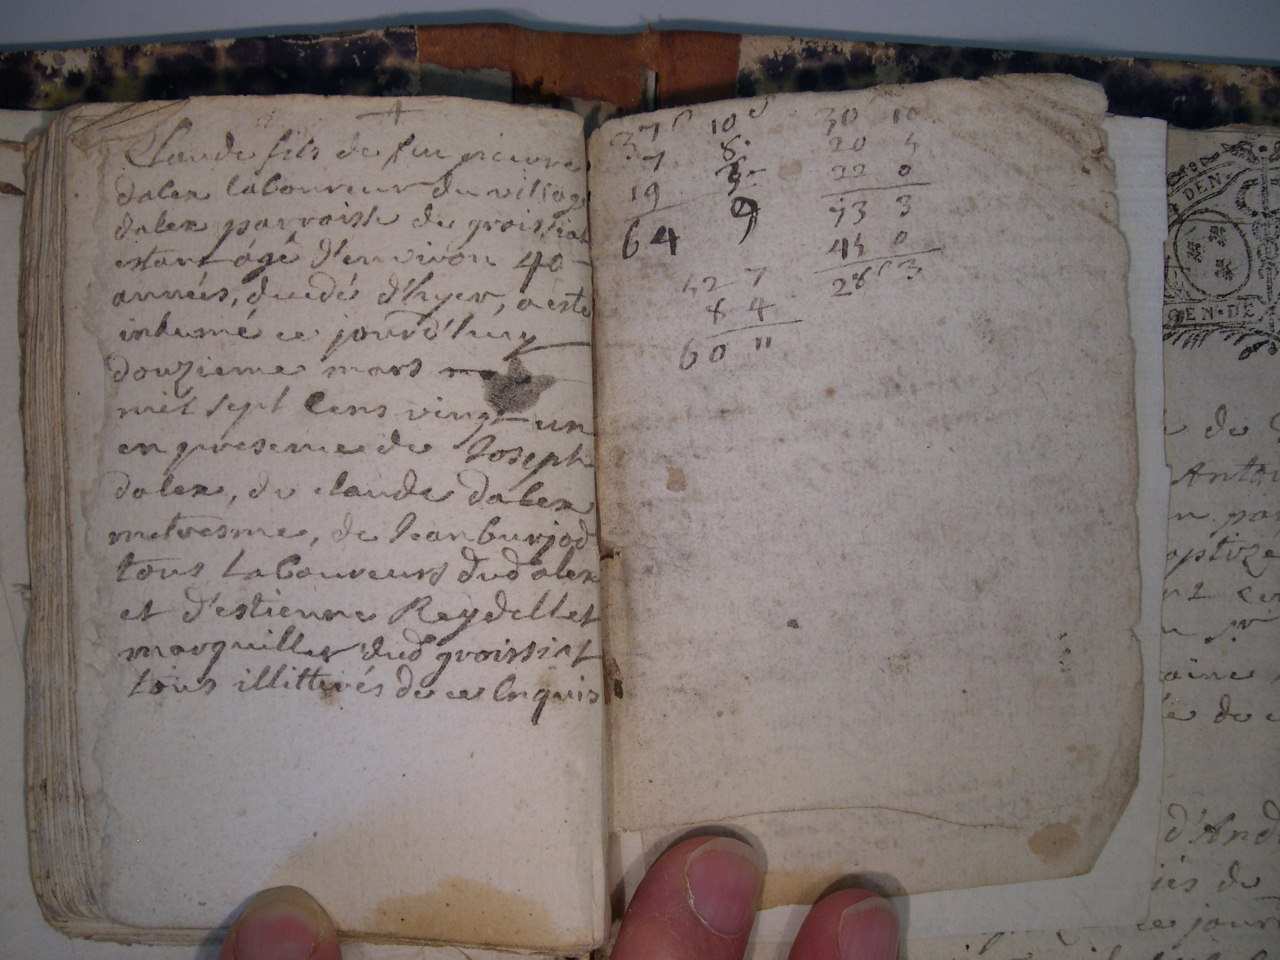 Claude fils de feu pierre
dalex laboureur du village
dalex parroisse de groissiat
estant agé d'environ 40
années, decedé d'hyer, a esté
inhumé ce jourd'huy
douzieme mars
mil sept cens vingt un
en presence de Joseph
dalex, de claude dalex
de Jean burjod
tous laboureurs dud dalex
et d'estienne Reydellet
marguiller dud groissiat
tous illitterés de ce Enquis
37 10
7 8
19
64 9
52 7
8 4
60 "
30 10
20 5
22 0
73 3
45 0
28 3
DEN
GEN·DE
de
Anto
n pa
aptizé
aine
de
d'And
iés de
ce jour